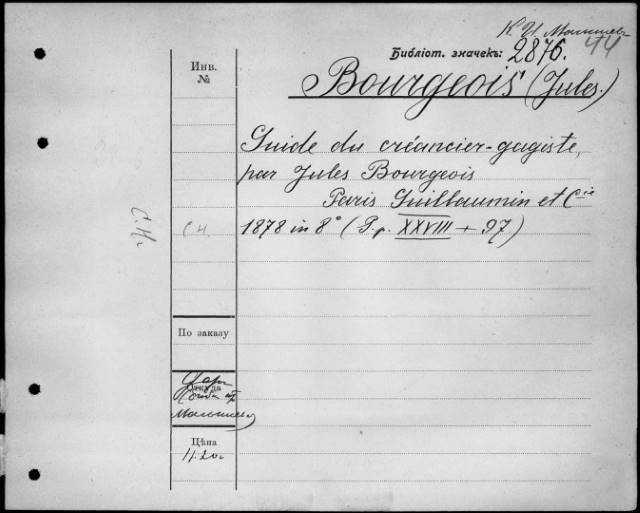 К. И. Малышев
44
Библіот. значекъ: 2876.
Инв.
№
Bourgeois (Jules.)
Guide du créancier-gagiste,
par Jules Bourgeois
Paris Guillaumin et Cie
1878 in 8° (P.p. XXVIII + 97.)
С.Н.
С.Н.
По заказу
Даръ
Откуда
Малышева
Цѣна